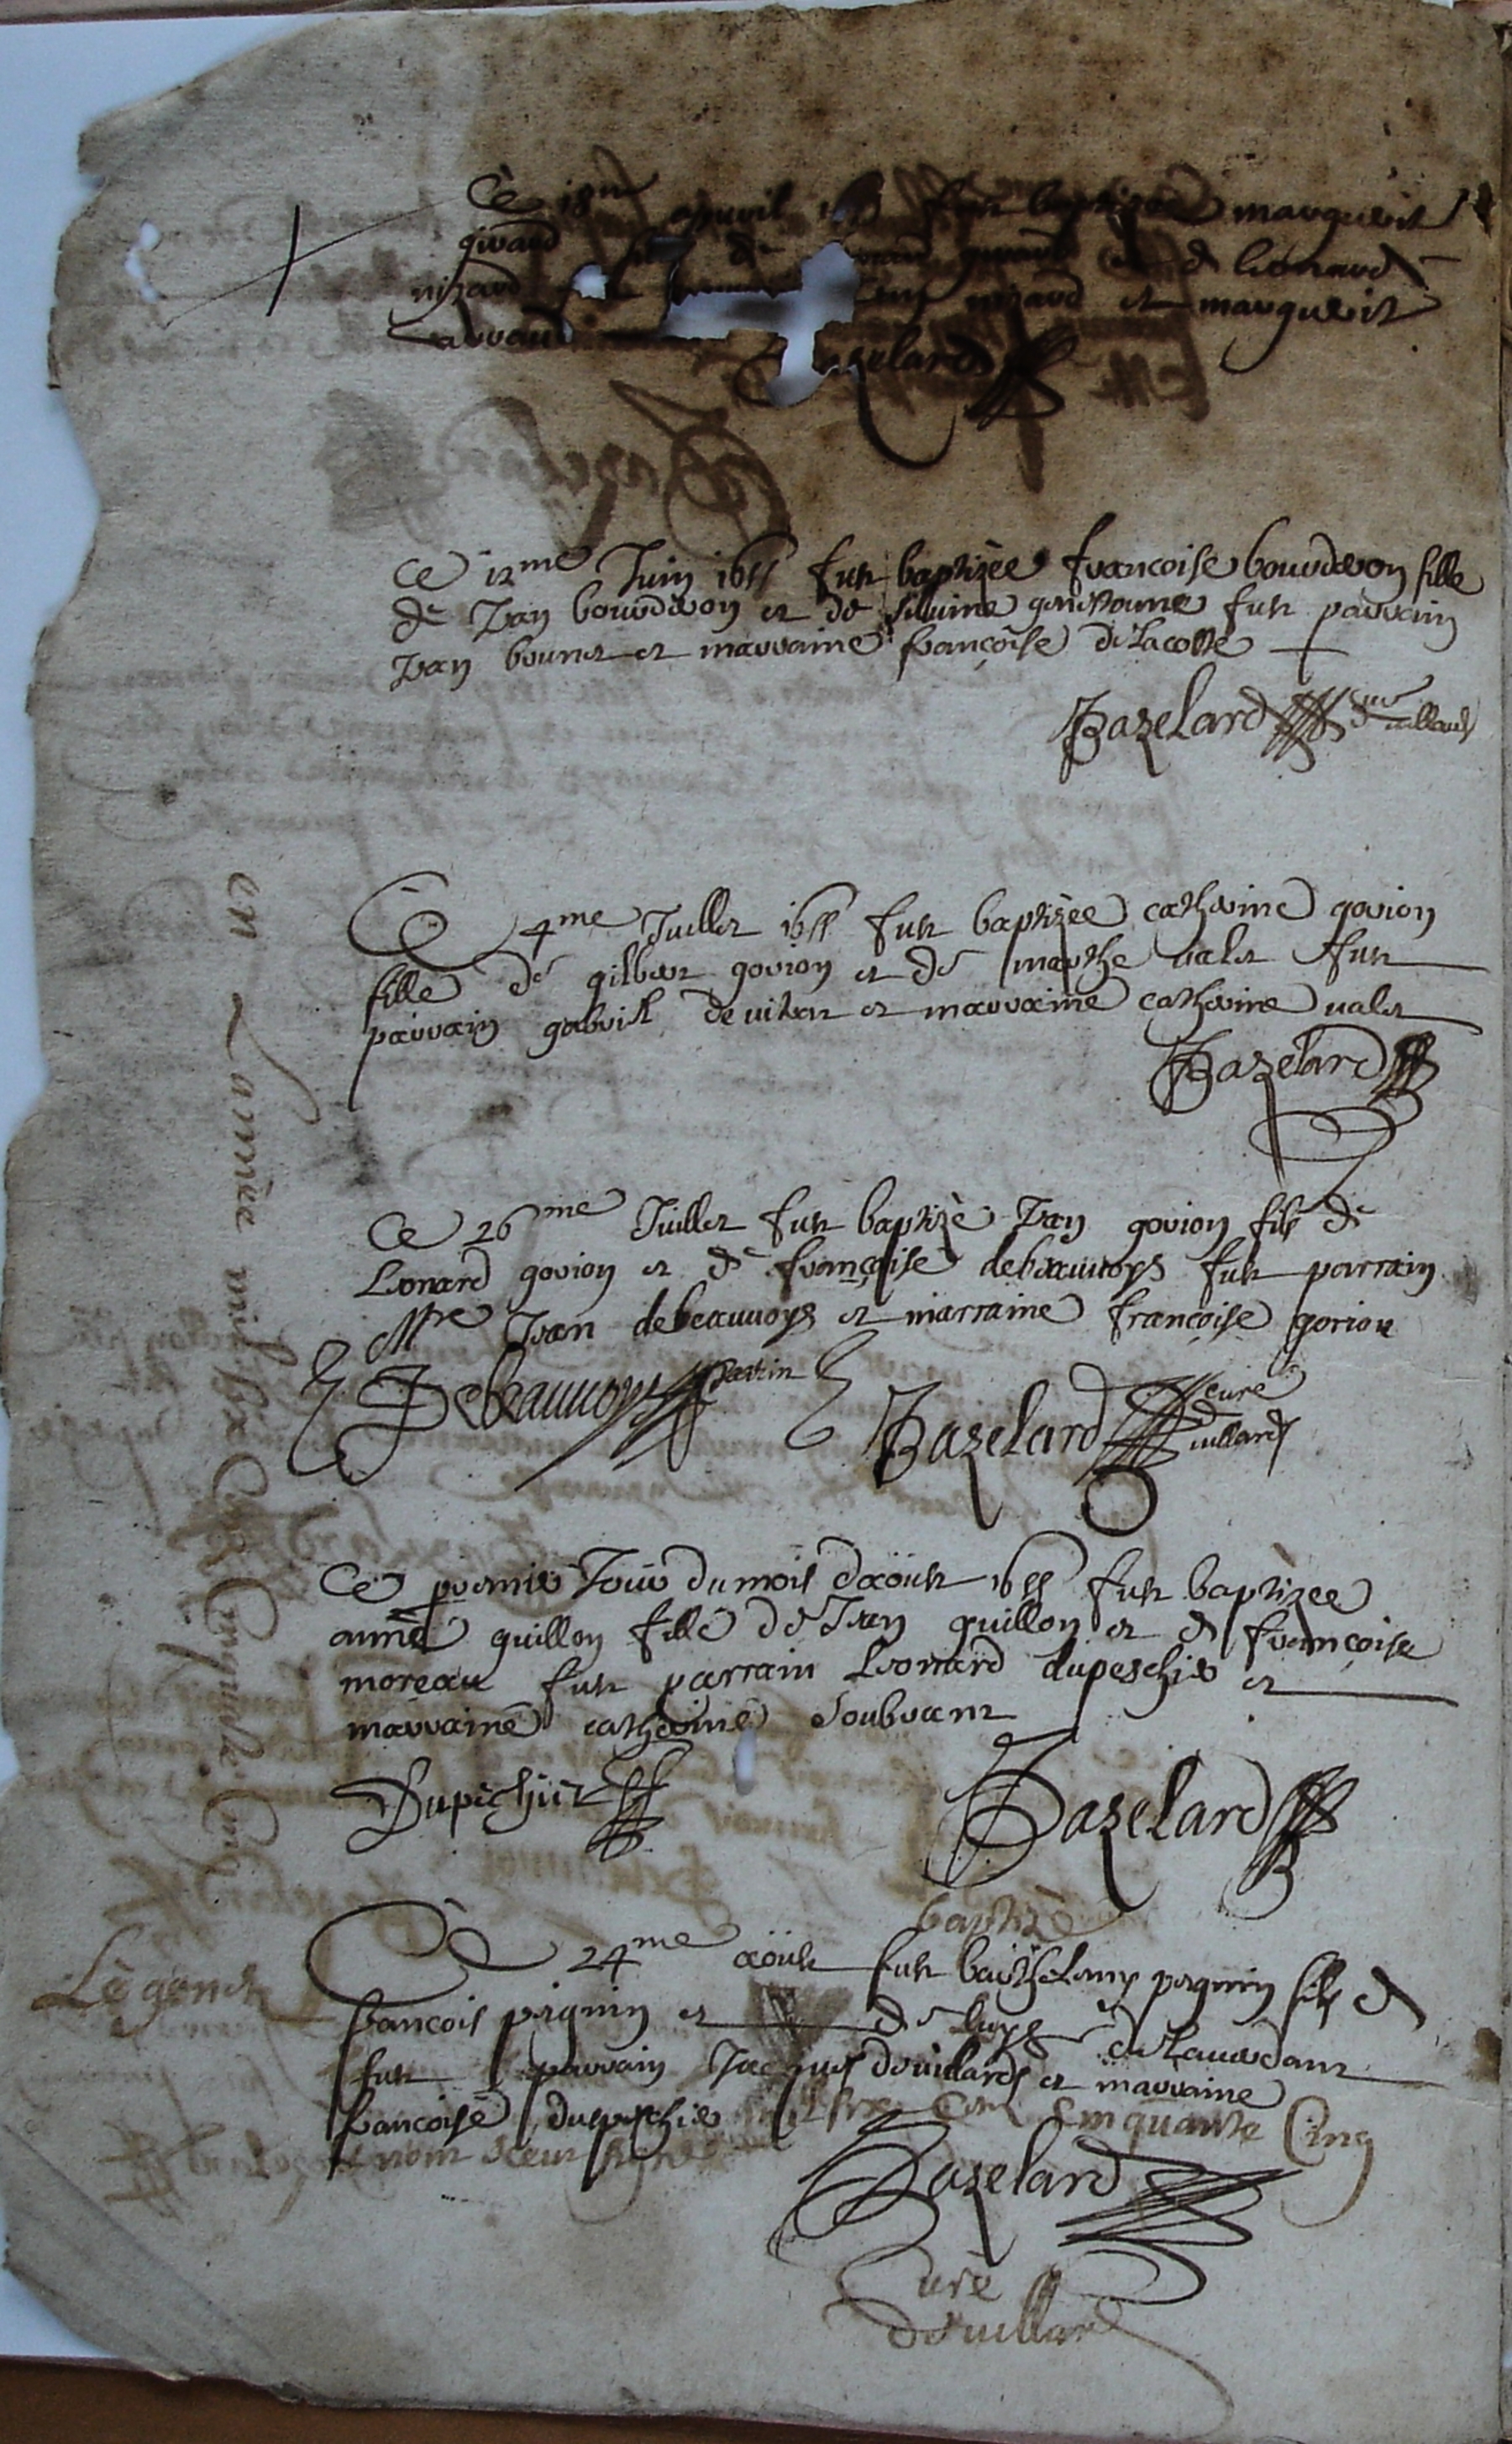 Ce 18me apuril fut baptizee marguerit
girard de girard et d lionard
nizard nizard et marguerit
Bazelard
Ce 12me Juin 1655 fut baptizèe francoise bourderon fille
de Jean bourderon et de siluine fut parrain
Jean brunet et marraine françoise de Lacoste
Bazelard cure de uillards
Ce 4me Juillet 1655 fut baptizèe catherine gorion
fille de gilbert gorion et de marthe ualet fut
parrain gabriel et marraine catherine ualet
Bazelard
Ce 26me Juillet fut baptizè Jean gorion fils de
Leonard gorion et de françoise debeauuoys fut parrain
Mtre Jean debeauuoys et marraine françoise gorion
Debeauuoys parrin
Bazelard cure d uillards
Ce premier Jour du mois d'aoüst 1655 fut baptizee
anne guillon fille de Jean guillon et d françoise
moreau fut parrain Leonard dupeschier et
marraine catherine Soubrant
Dupischier
Bazelard
baptizè
Ce 24me aöust fut barthelemy peronin fils d
francois peronin et de
fut parrain Jacques deuillards et marraine
francoise dupeschier mil six Cent Cinquante Cinq
Bazelard
Curè
de uillard
en Lannèe mil six Cent Cinquante Cinq